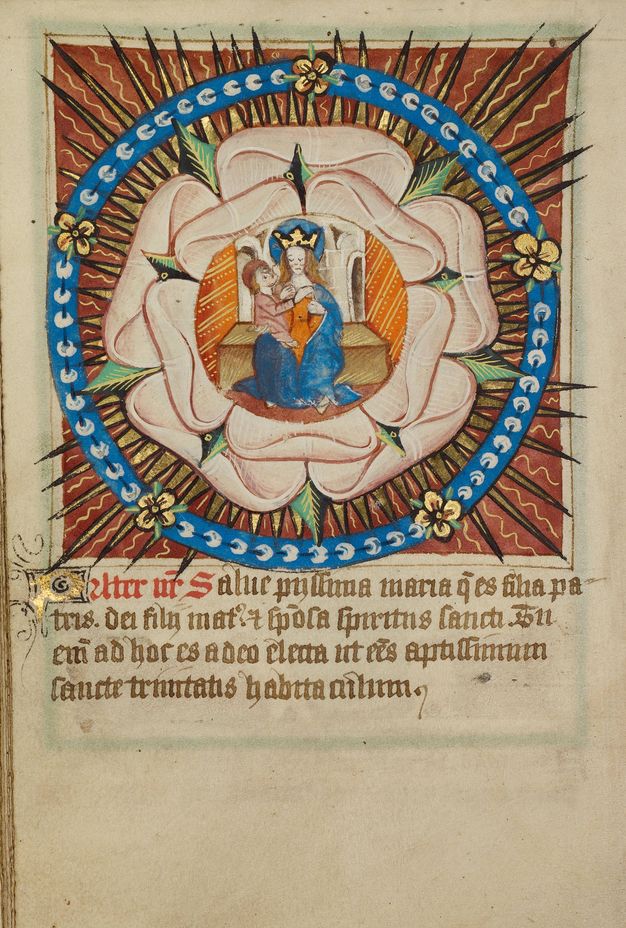 Pater nr̄ Salue pijssima maria q̄ es filia pa-
tris. dei filij mat᷑ ⁊ sp̄osa spiritus sancti. Tu
em̄ ad hoc es a deo electa ut eēs aptissimum
sancte trinitatis habitaculum.